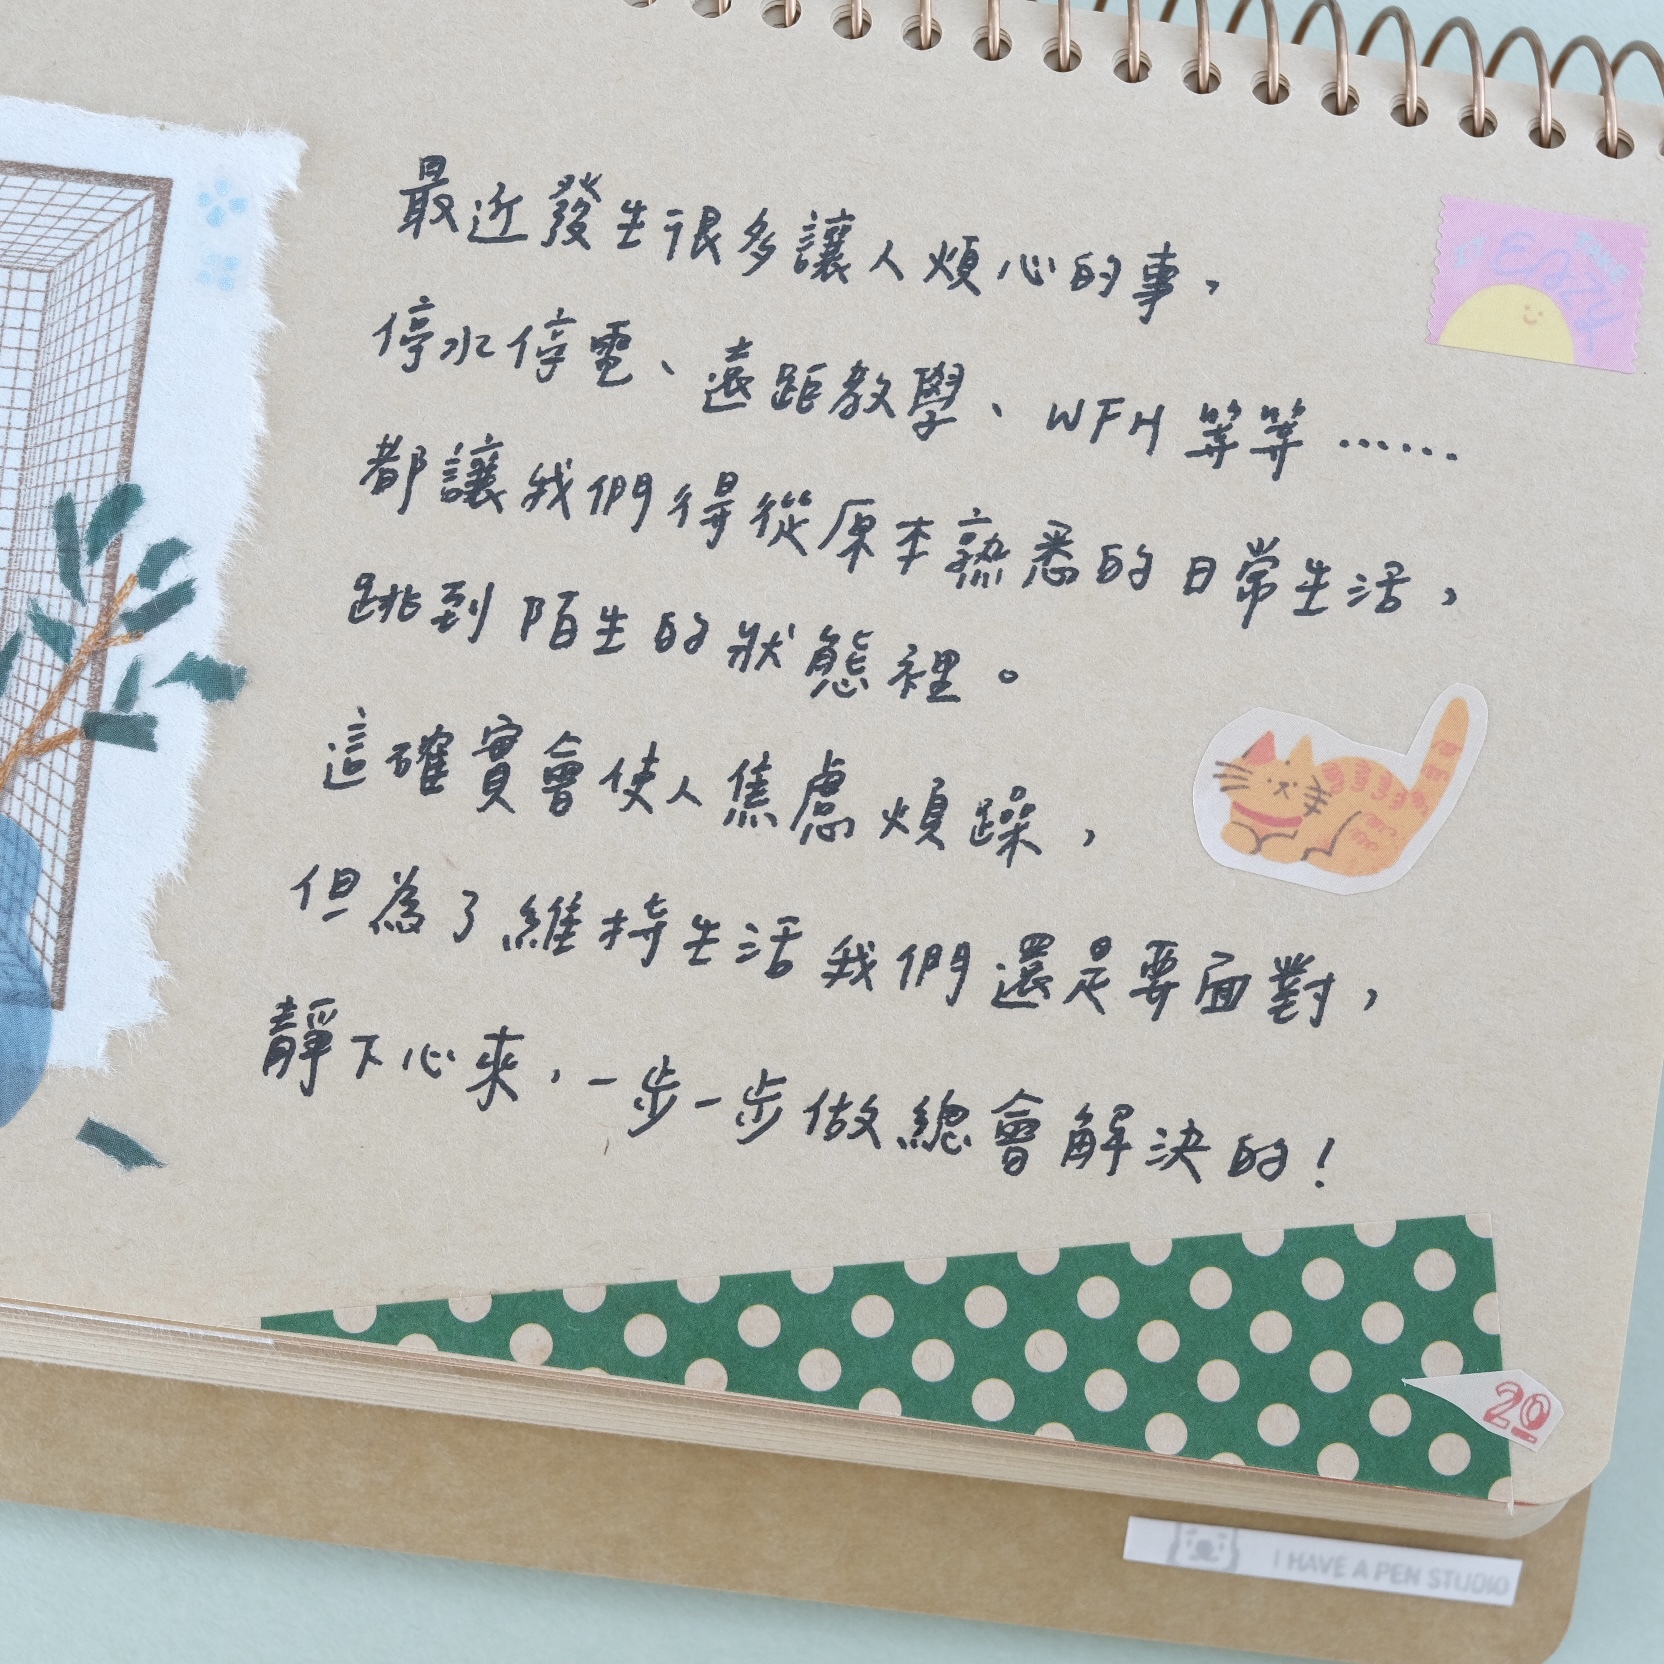 最近發生很多讓人煩心的事,
停水停電、遠距教學、WFH等等……
都讓我們得從原本熟悉的日常生活,
跳到陌生的狀態裡。
這確實會使人焦慮煩躁,
但為了維持生活我們還是要面對,
靜下心來,一步一步做總會解決的!
20
I HAVE A PEN STUDIO